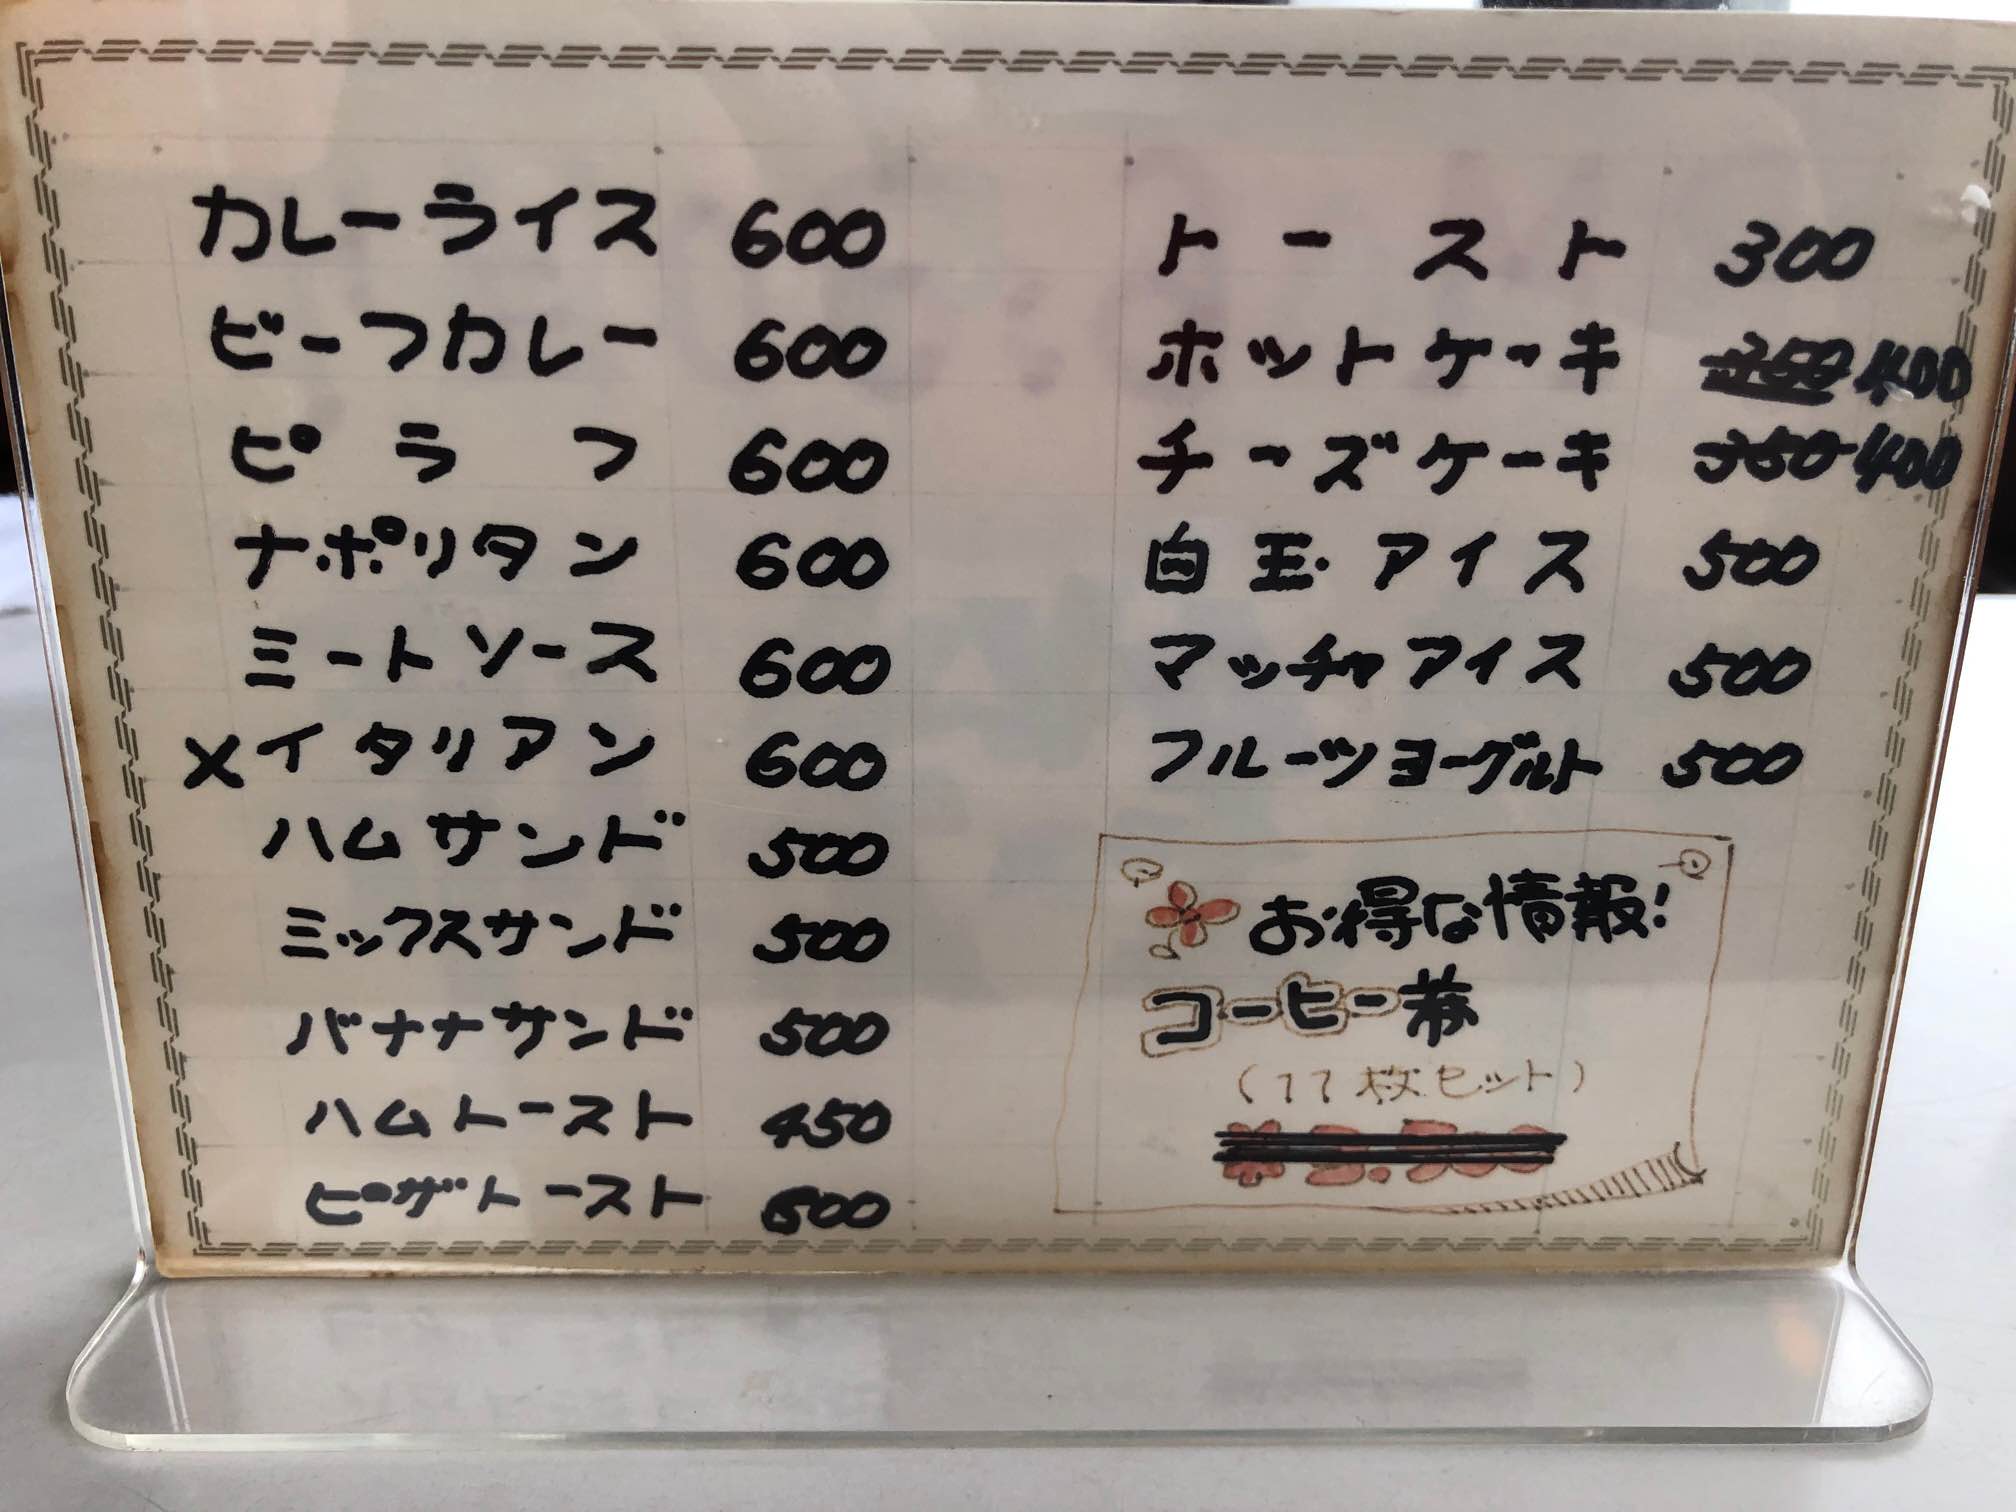 カレーライス 600
ビーフカレー 600
ピラフ 600
ナポリタン 600
ミートソース 600
×イタリアン 600
ハムサンド 500
ミックスサンド 500
バナナサンド 500
ハムトースト 450
ピザトースト 500
トースト 300
ホットケーキ 350 400
チーズケーキ 350 400
白玉アイス 500
マッチャアイス 500
フルーツヨーグルト 500
お得な情報!
コーヒー券
(11枚セット)